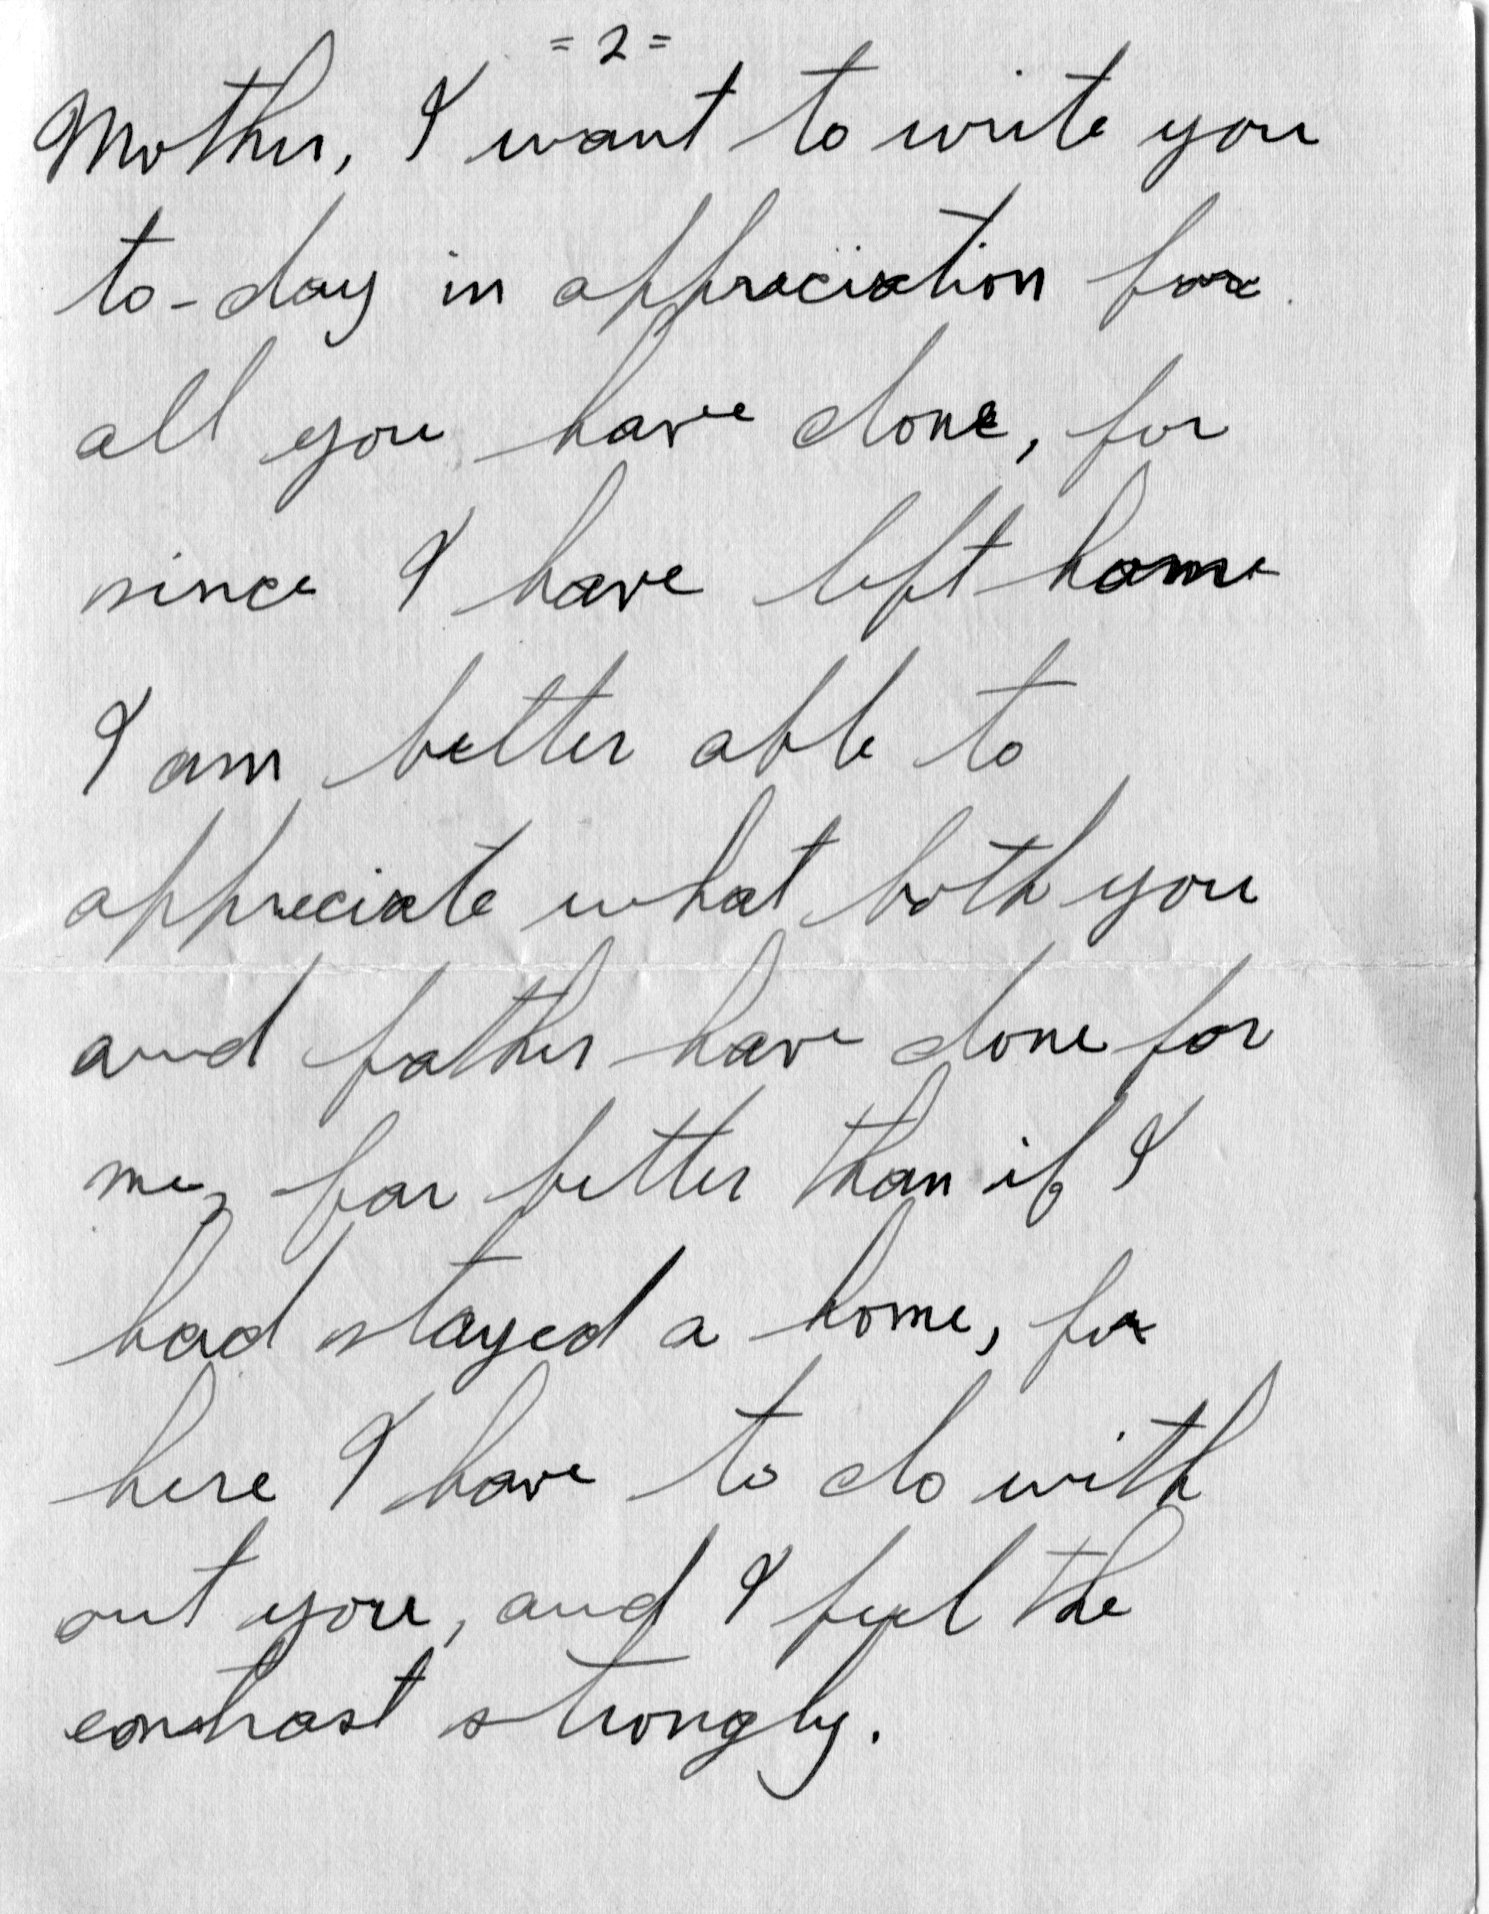 = 2 =
Mother, I want to write you
to-day in appreciation for
all you have done, for
since I have left home
I am better able to
appreciate what both you
and father have done for
me, far better than if I
had stayed a home, for
here I have to do with
out you, and I feel the
contrast strongly.